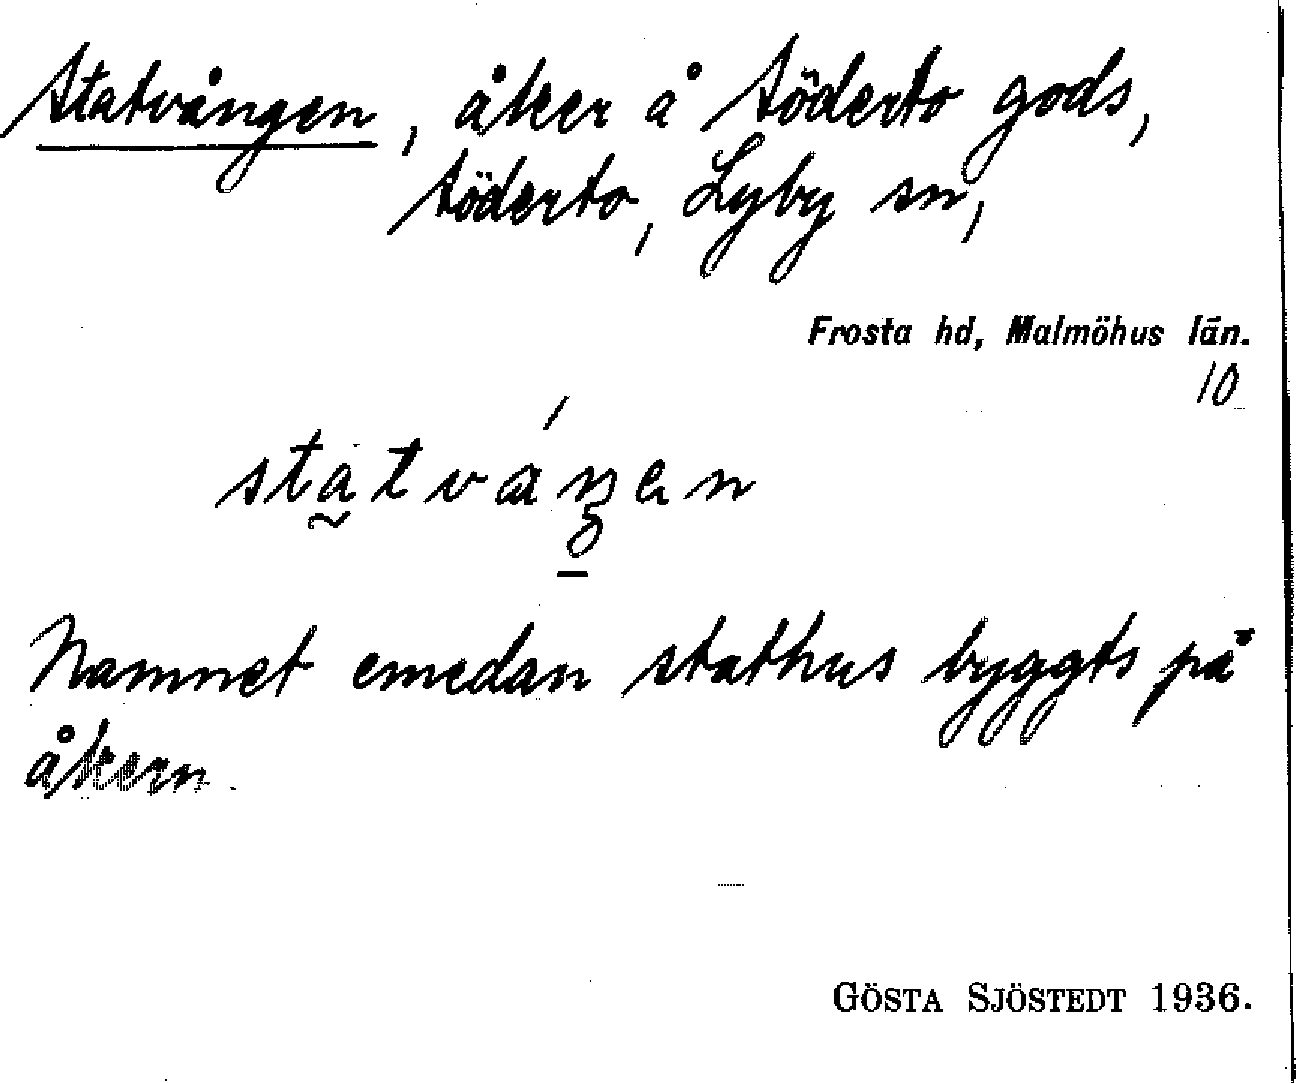 Statvången, åker å Söderto gods,
Söderto, Lyby sn,
Frosta hd, Malmöhus län.
10
statváŋen
Namnet emedan stathus byggts på
åkern.
GÖSTA SJÖSTEDT 1936.